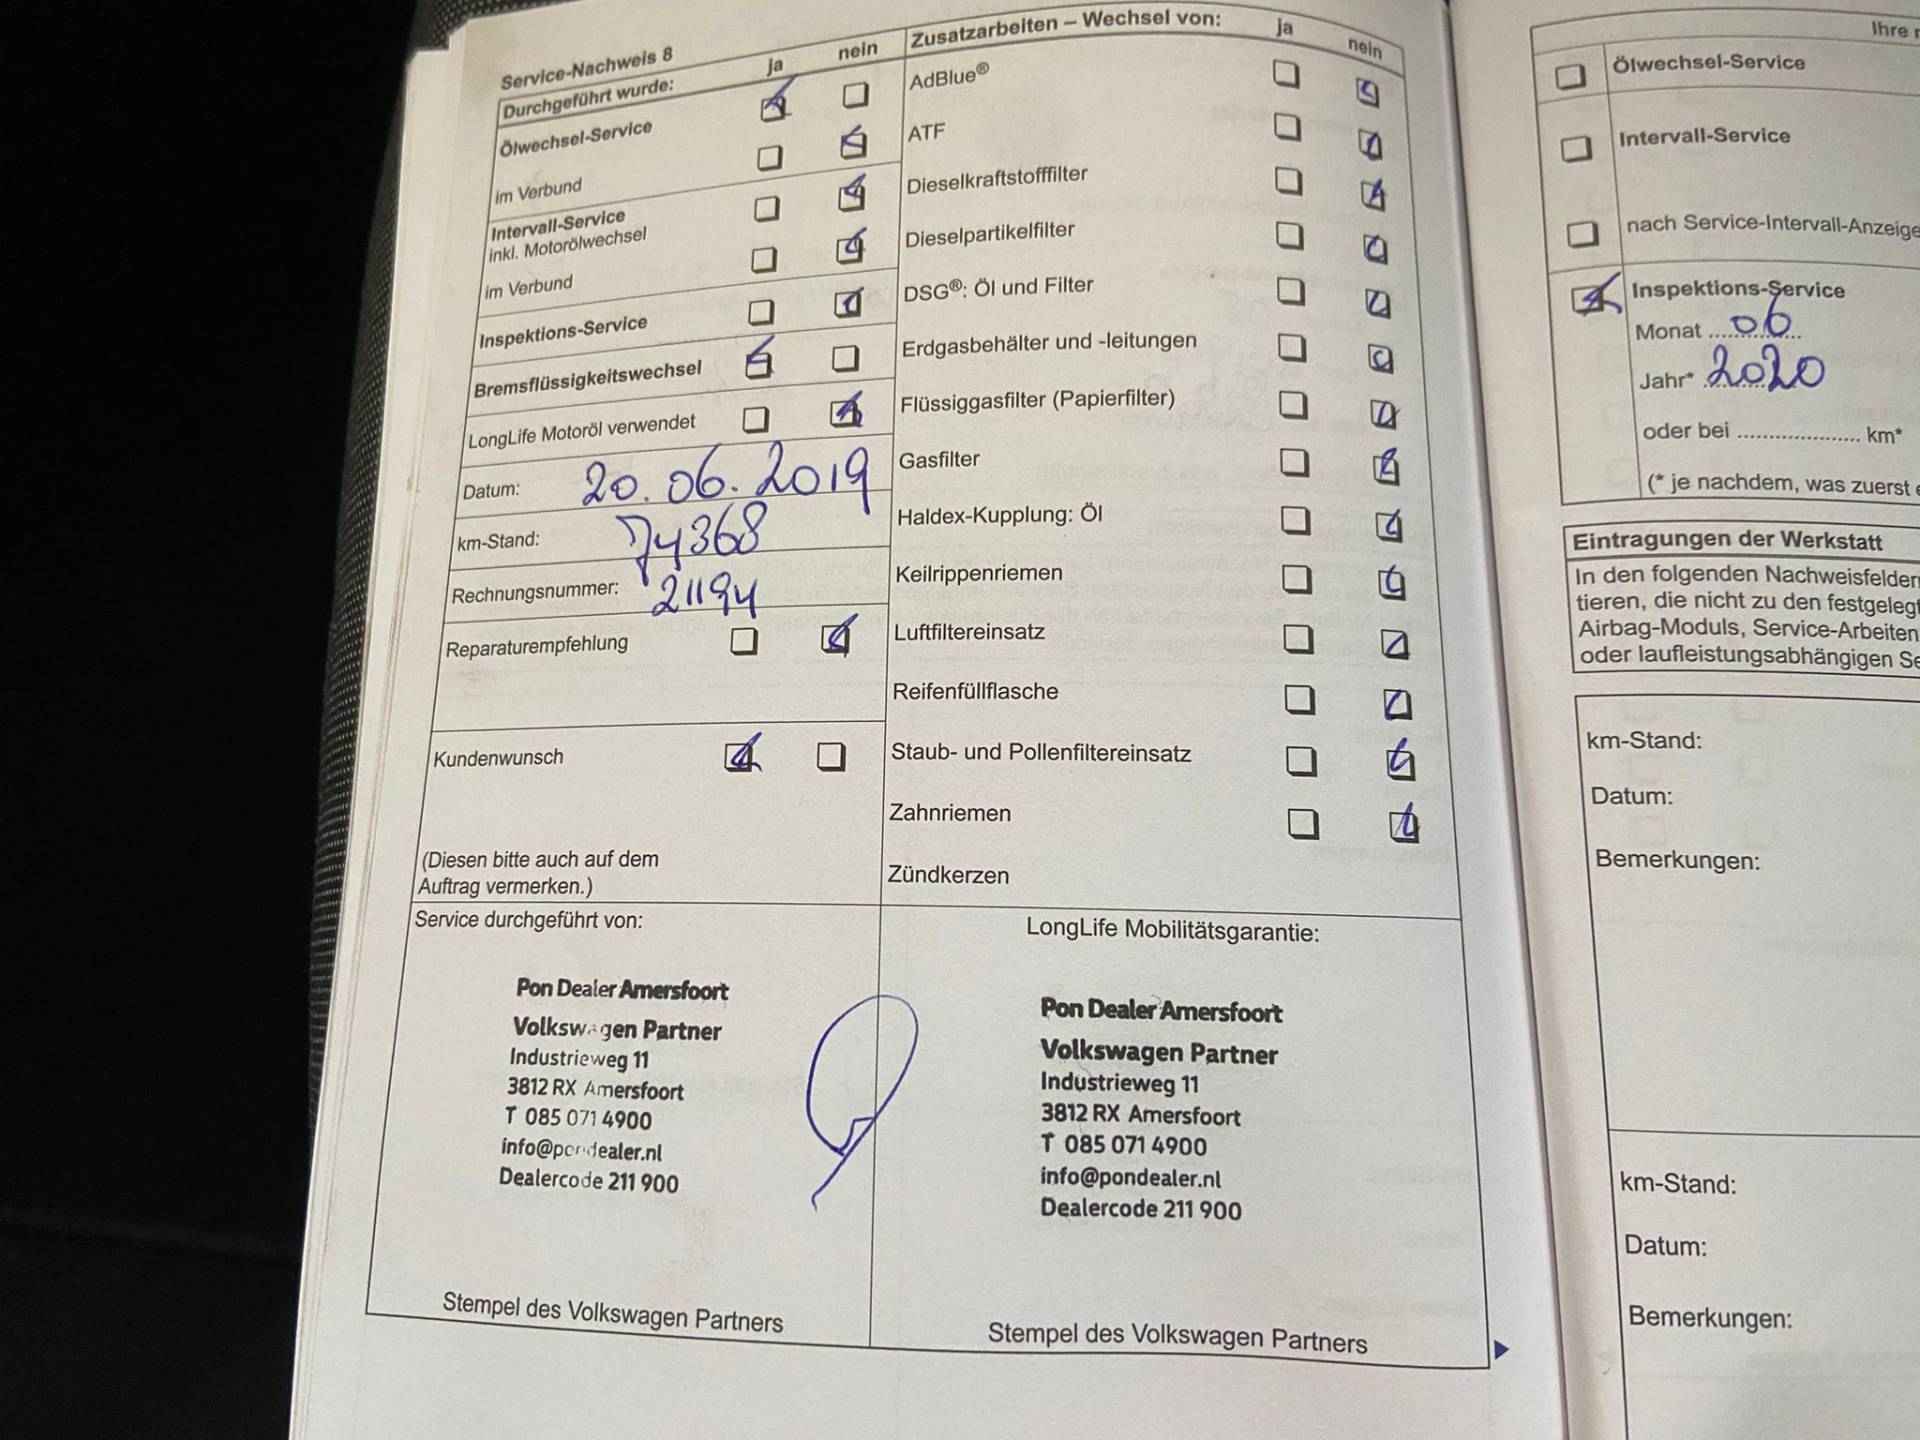 Service-Nachweis 8
Durchgeführt wurde: ja nein
Ölwechsel-Service
im Verbund
Intervall-Service
inkl. Motorölwechsel
im Verbund
Inspektions-Service
Bremsflüssigkeitswechsel
LongLife Motoröl verwendet
Datum: 20.06.2019
km-Stand: 74368
Rechnungsnummer: 21194
Reparaturempfehlung
Kundenwunsch
(Diesen bitte auch auf dem
Auftrag vermerken.)
Zusatzarbeiten – Wechsel von: ja nein
AdBlue®
ATF
Dieselkraftstofffilter
Dieselpartikelfilter
DSG®: Öl und Filter
Erdgasbehälter und -leitungen
Flüssiggasfilter (Papierfilter)
Gasfilter
Haldex-Kupplung: Öl
Keilrippenriemen
Luftfiltereinsatz
Reifenfüllflasche
Staub- und Pollenfiltereinsatz
Zahnriemen
Zündkerzen
Service durchgeführt von:
Pon Dealer Amersfoort
Volkswagen Partner
Industrieweg 11
3812 RX Amersfoort
T 085 071 4900
info@pondealer.nl
Dealercode 211 900
Stempel des Volkswagen Partners
LongLife Mobilitätsgarantie:
Pon Dealer Amersfoort
Volkswagen Partner
Industrieweg 11
3812 RX Amersfoort
T 085 071 4900
info@pondealer.nl
Dealercode 211 900
Stempel des Volkswagen Partners
Ihre
Ölwechsel-Service
Intervall-Service
nach Service-Intervall-Anzeige
Inspektions-Service
Monat 06
Jahr* 2020
oder bei .................... km*
(* je nachdem, was zuerst
Eintragungen der Werkstatt
In den folgenden Nachweisfeldern
tieren, die nicht zu den festgelegt
Airbag-Moduls, Service-Arbeiten
oder laufleistungsabhängigen Se
km-Stand:
Datum:
Bemerkungen:
km-Stand:
Datum:
Bemerkungen: